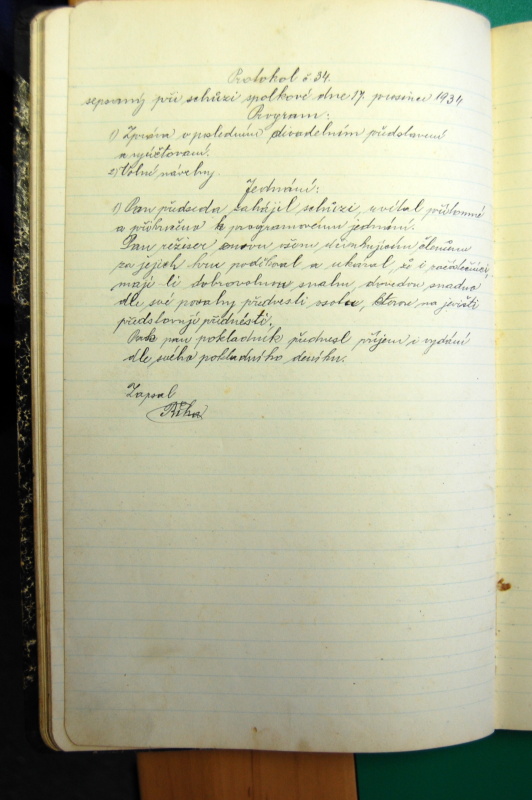 Protokol č 34.
sepsaný při schůzi spolkové dne 17. prosince 1934
Program:
1) Zpráva o posledním divadelním představení
a vyúčtování.
2) Volné návrhy.
Jednání:
1) Pan předseda zahájil schůzi, uvítal přítomné
a přikročeno k programovému jednání.
Pan režiser znovu všem účinkujícím členům
za jejich hru poděkoval a ukázal, že i začátečníci
mají-li dobrovolnou snahu, dovedou snadno
dle své povahy předvésti osobu, kterou na jevišti
představují přednésti.
Pak pan pokladník přednesl příjem i vydání
dle svého pokladního deníku.
Zapsal
Říha